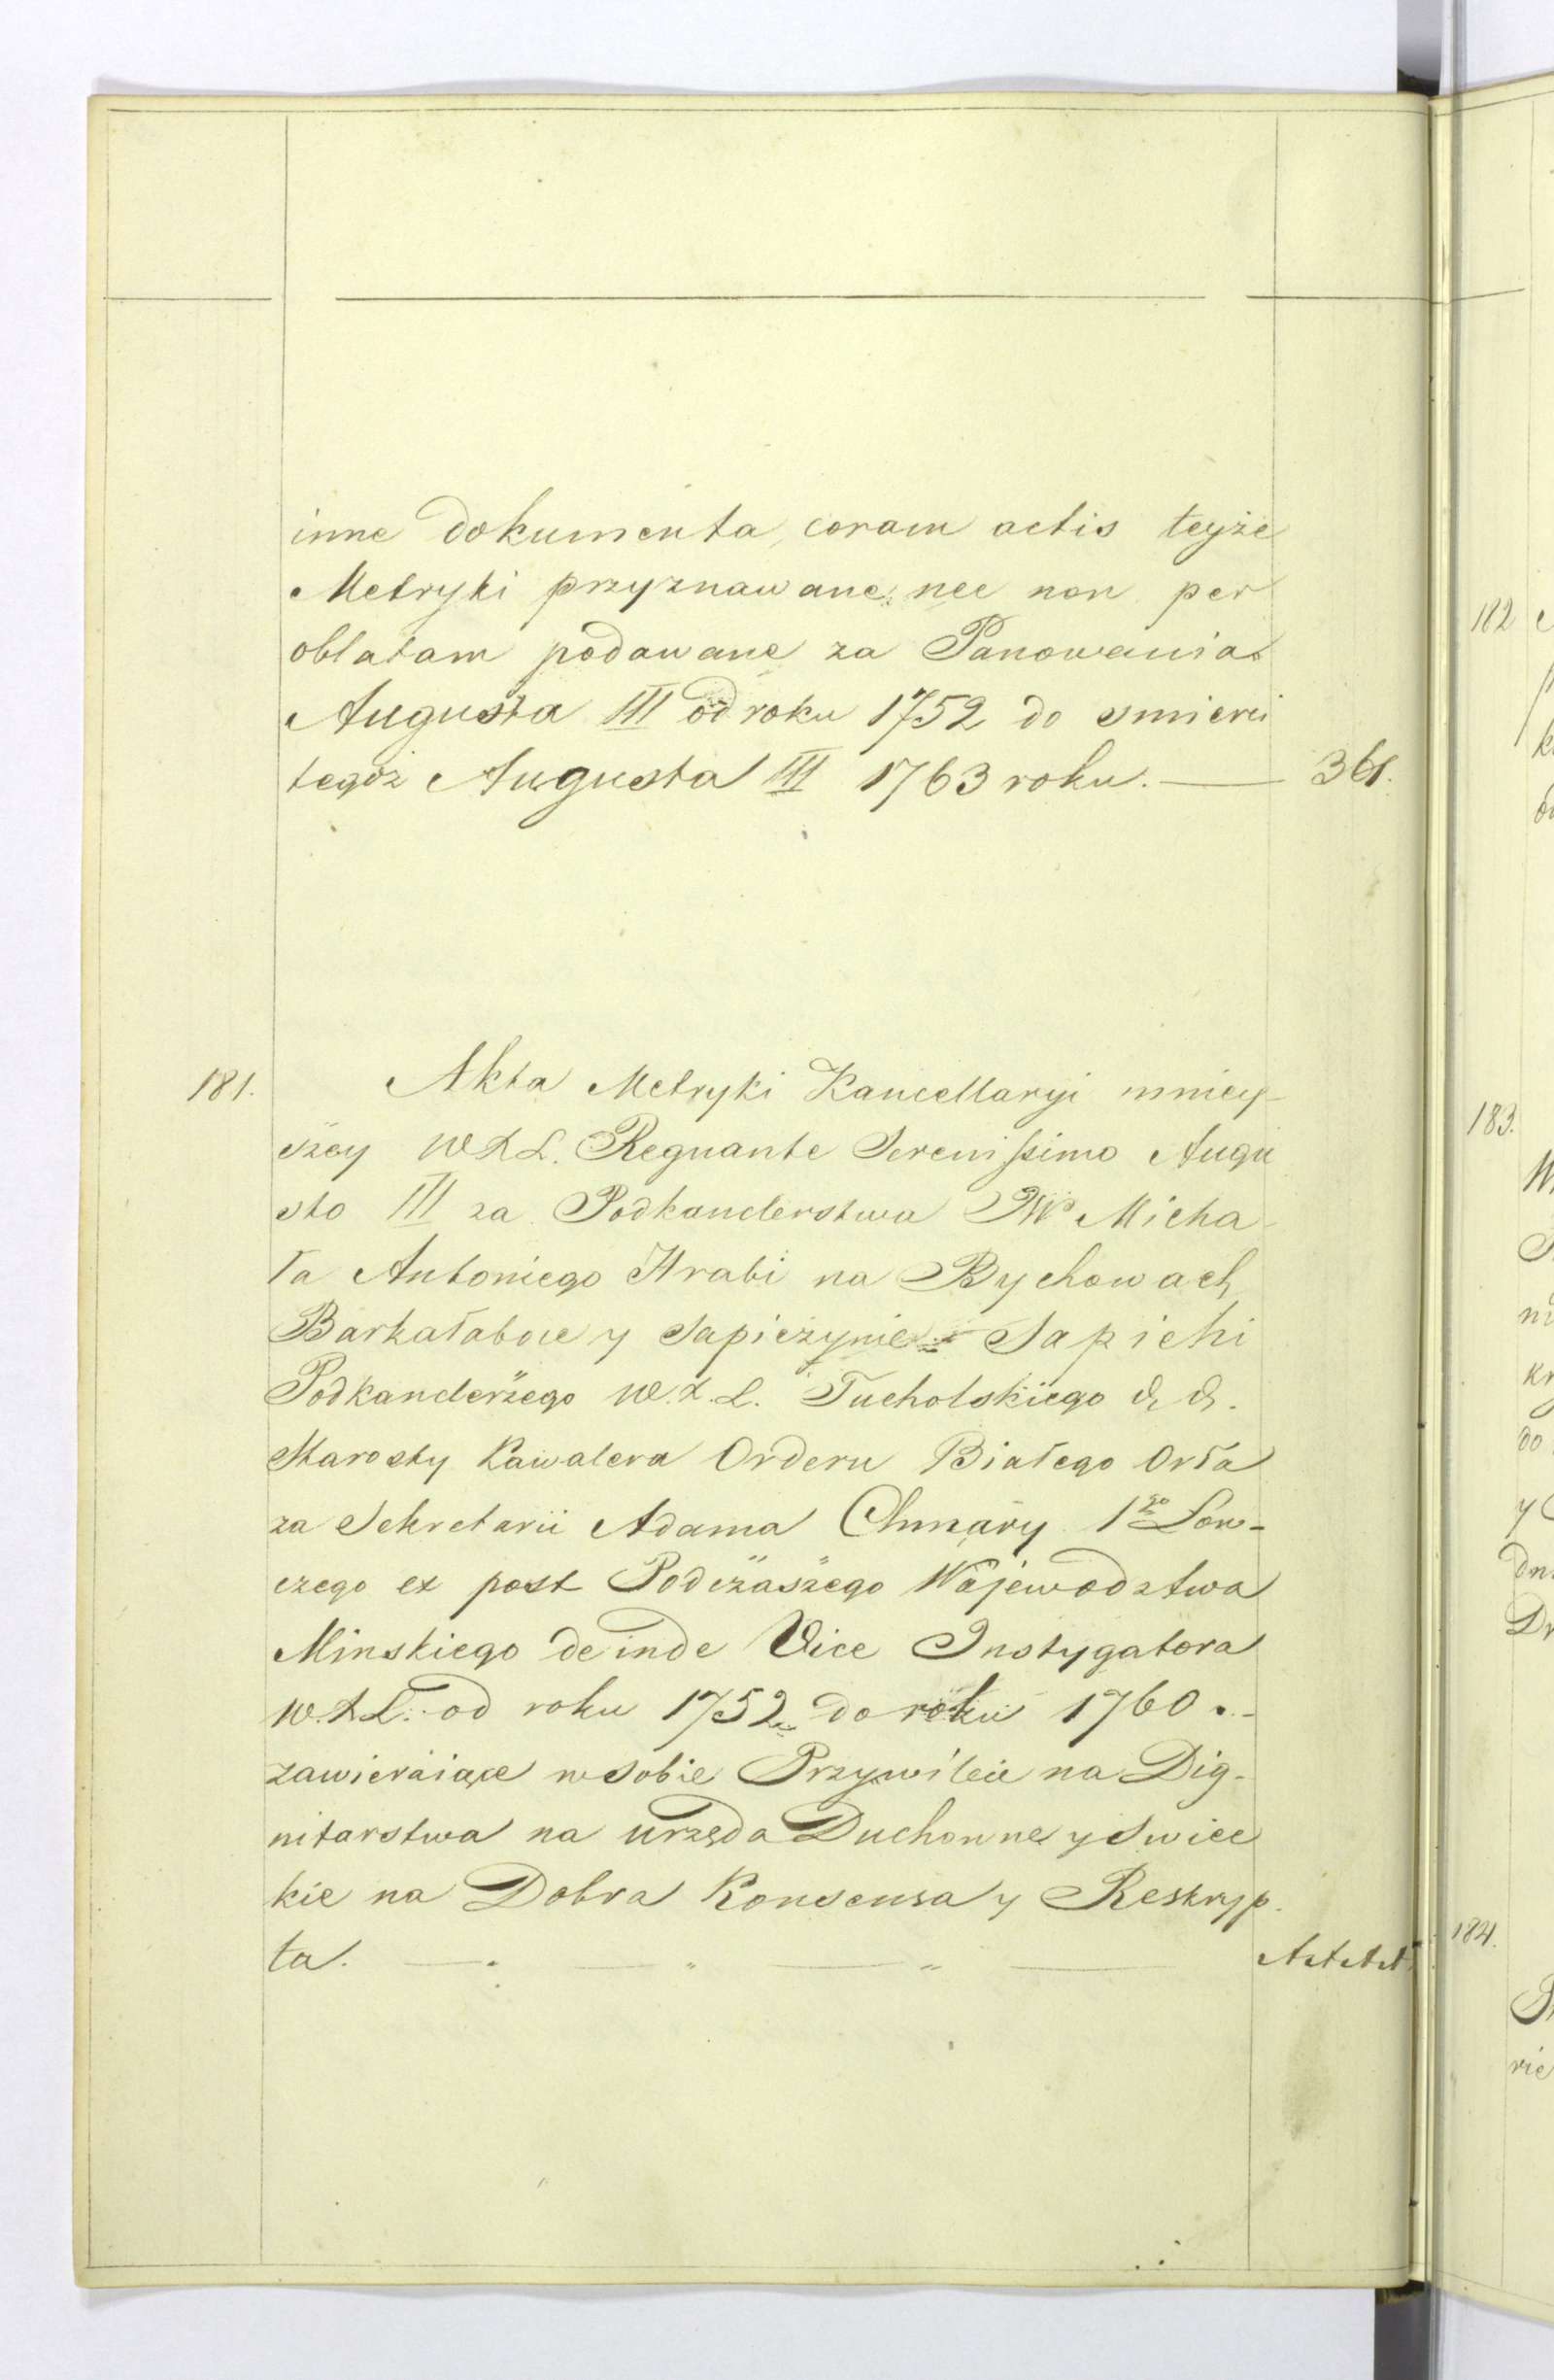 inne dokumenta, coram actis teyże
Metryki przyznawane, nec non per
oblatam podawane za Panowania
Augusta III od roku 1752 do smierci
tegoż Augusta III 1763 roku. — 361.
181. Akta Metryki Kancellaryi mniey-
szey W.X.L. Regnante Serenissimo Augu
sto III za Podkanclerstwa JW Micha-
ła Antoniego Hrabi na Bychowach
Barkałabowe y Sapieżynie Sapiehi
Podkanclerzego W.X.L. Tucholskiego &. &.
Starosty Kawalera Orderu Białego Orła
za Sekretarii Adama Chmary 1go Łow-
czego ex post Podczaszego Wajewodztwa
Minskiego deinde Vice Instygatora
W.X.L. od roku 1752 do roku 1760.-
zawieraiące w sobie Przywileie na Dig-
nitarstwa na urzęda Duchowne y Swiec
kie na Dobra Konsensa y Reskryp-
ta.
182
183.
184.